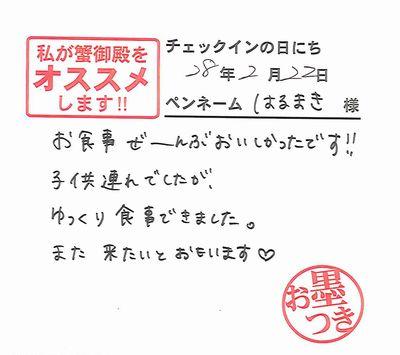 私が蟹御殿を
オススメ
します!!
チェックインの日にち
28年2月22日
ペンネーム はるまき 様
お食事ぜーんぶおいしかったです!!
子供連れでしたが、
ゆっくり食事できました。
また来たいとおもいます♡
お墨つき